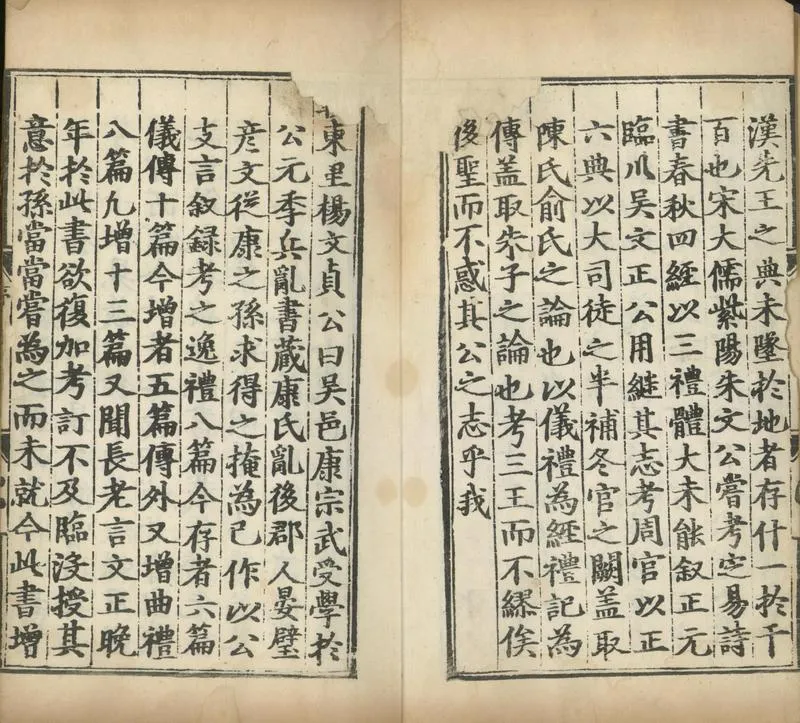 漢先王之典未墜於地者存什一於千
百也宋大儒紫陽朱文公嘗考定易詩
書春秋四經以三禮體大未能叙正元
臨川吴文正公用繼其志考周官以正
六典以大司徒之半補冬官之闕蓋取
陳氏俞氏之論也以儀禮為經禮記為
傳蓋取朱子之論也考三王而不繆俟
後聖而不惑其公之志乎我
東里楊文貞公曰吴邑康宗武受學於
公元季兵亂書藏康氏亂後郡人晏璧
彦文從康之孫求得之掩為己作以公
支言叙録考之逸禮八篇今存者六篇
儀傳十篇今增者五篇傳外又增曲禮
八篇凡增十三篇又聞長老言文正晚
年於此書欲復加考訂不及臨没授其
意於孫當當嘗為之而未就今此書增